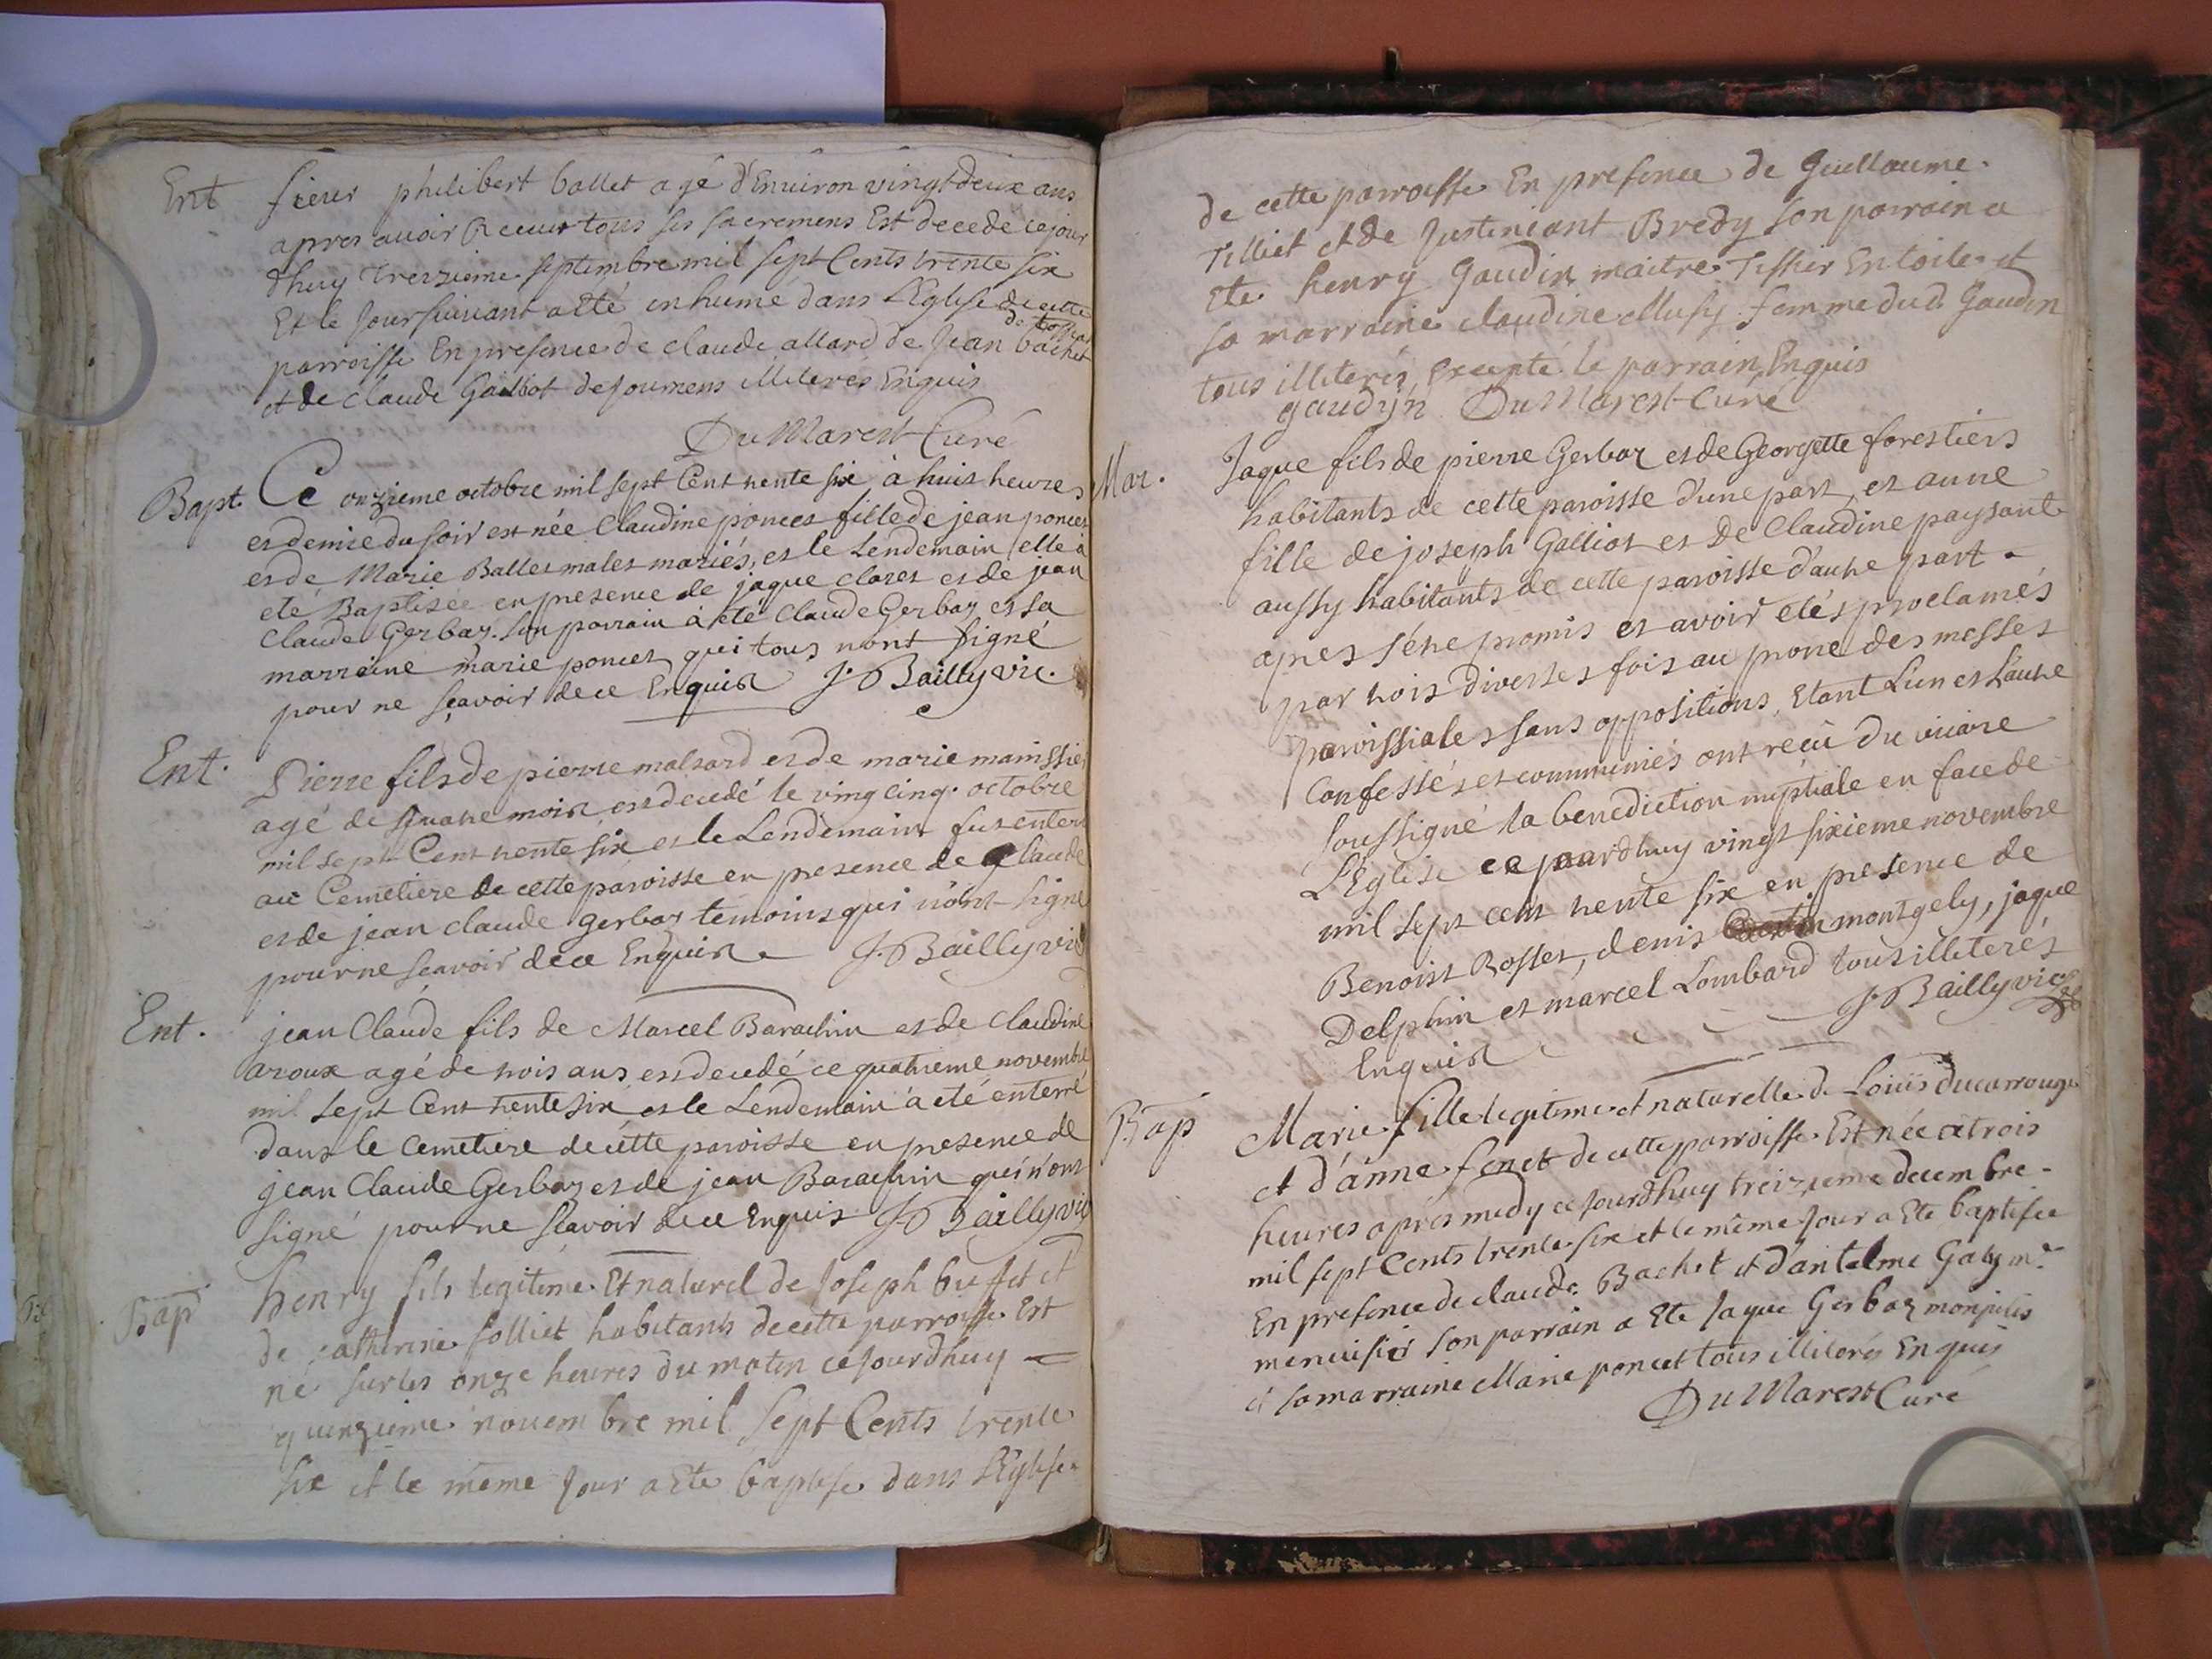 Ent sieur philibert ballet agé d'Enuiron vingtdeux ans
apres auoir Receut tous ses sacremens Est decedé cejour
dhuy treizieme septembre mil sept Cents trente six
Et le Jour suiuant a Eté inhumé dans L'Eglise de cette
parroisse En presence de claude allard de Jean bachet
et de claude Galliot de Journens illiterés Enquis
DuMarest Curé
Bapt. Ce onzieme octobre mil sept Cent trente six à huit heures
et demie du soir est née Claudine poncet fille de jean poncet
et de Marie Ballet mariés, et le Lendemain elle à
eté Baptisée en presence de jaque claret et de jean
Claude Gerbaz. Son parrain à eté Claude Gerbaz et sa
marraine marie poncet qui tous n'ont signé
pour ne sçavoir de ce Enquis J. Bailly vic.
Ent. Pierre fils de pierre malsard et de marie mainssie
agé de quatre mois est decedé le vingt cinq. octobre
mil sept Cent trente six et le Lendemain fut enterr
au Cemetiere de cette paroisse en presence de Claude
et de jean claude gerbaz temoins qui n'ont signé
pour ne scavoir de ce Enquis J. Bailly vic
Ent. jean Claude fils de Marcel Barachin et de claudine
aroux agé de trois ans est decedé ce quatrieme novembre
mil sept Cent trente six et le Lendemain à eté enterré
dans le cemetiere de cette paroisse en presence de
jean Claude Gerbaz et de jean Barachin qui n'ont
signé pour ne sçavoir de ce enquis J. Bailly vic
Bap henry fils legitime Et naturel de Joseph bufet et
de catherine folliet habitants de cette parroisse Est
né sur les onze heures du matin cejourdhuy
quinzieme nouembre mil sept Cents trente
six et le même Jour a Ete baptisé dans l'Eglise
de cette parroisse En presence de Guillaume
Tilliet et de Justinient Bredy son parrain a
Ete henry Gaudin maitre Tissier En toile et
sa marraine claudine Musy femme dud. Gaudin
tous illiterés, Excepté le parrain Enquis
gaudyn DuMarest Curé
Mar. Jaque fils de pierre Gerbaz et de Georgette forestiers
habitants de cette paroisse d'une part, et anne
fille de joseph Galliot et De Claudine paysant
aussy habitants de cette paroisse d'autre part
apres s'étre promis et avoir etés proclamés
par trois diverses fois au prone des messes
paroissiales sans oppositions, Etant L'un et L'autre
Confessés et communiés ont reçù du vicaire
soussigné la benediction nuptiale en face de
L'Eglise ce jourdhuy vingt sixieme novembre
mil sept cent trente six en presence de
Benoist Rosset, denis montgely, jaque
Delphin et marcel Lombard tous illiterés
Enquis J. Bailly vic
Bap Marie fille legitime et naturelle de Loüis ducarrouge
et d'anne fenet de cette parroisse Est née a trois
heures apres midy ce Jourdhuy treizieme decembre
mil sept Cents trente six et le même Jour a Ete baptisée
En presence de claude Bachet et d'antelme Galy me
menuisier son parrain a Ete Jaque Gerbaz
et sa marraine Marie poncet tous illiterés Enquis
DuMarest Curé